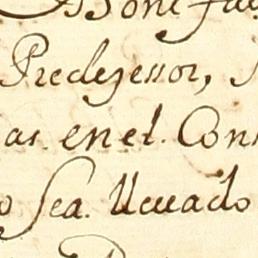 Bonifa
Predeçessor,
as. en el. Cons
o Sea. lleuado